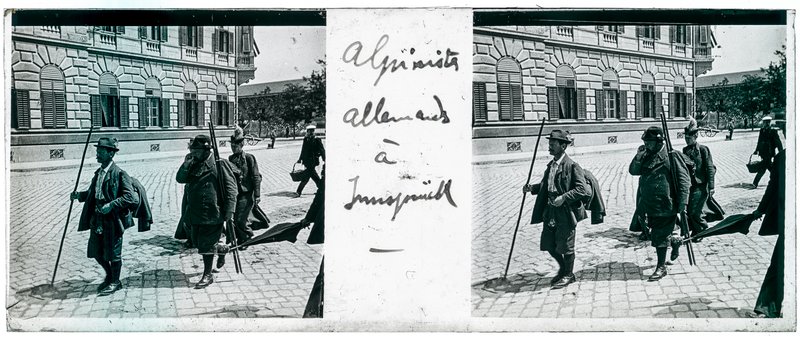 Alpinistes
allemands
à
Innsprück